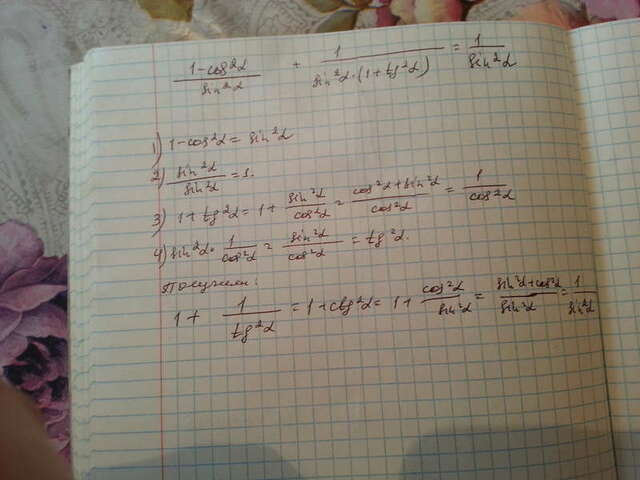 (1-cos²α)/(sin²α) + 1/(sin²α·(1+tg²α)) = 1/(sin²α)
1) 1-cos²α = sin²α
2) sin²α/sin²α = 1.
3) 1+tg²α = 1 + sin²α/cos²α = (cos²α+sin²α)/cos²α = 1/cos²α
4) sin²α · 1/cos²α = sin²α/cos²α = tg²α.
Получим:
1 + 1/tg²α = 1+ctg²α = 1 + cos²α/sin²α = (sin²α+cos²α)/sin²α = 1/sin²α